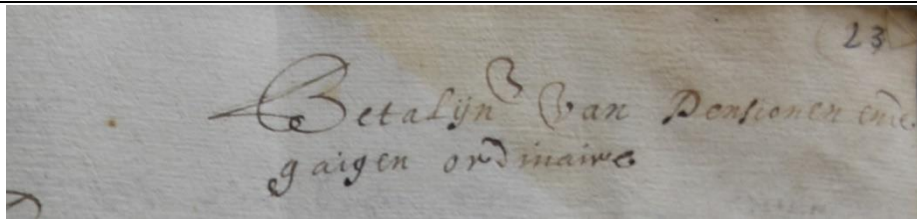 23
Betalijn van Pensionen ende
gaigen ordinaire